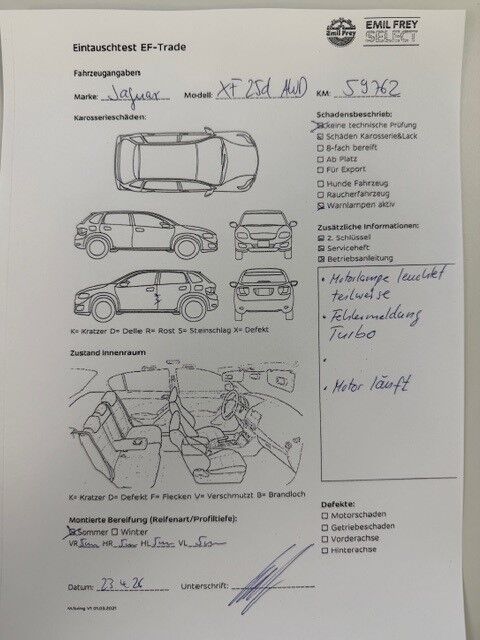 Emil Frey
EMIL FREY
SELECT
Eintauschtest EF-Trade
Fahrzeugangaben
Marke: Jaguar Modell: XF 25d AWD KM: 59762
Karosserieschäden:
Schadensbeschrieb:
keine technische Prüfung
Schäden Karosserie&Lack
8-fach bereift
Ab Platz
Für Export
Hunde Fahrzeug
Raucherfahrzeug
Warnlampen aktiv
Zusätzliche Informationen:
2. Schlüssel
Serviceheft
Betriebsanleitung
• Motorlampe leuchtet
teilweise
• Fehlermeldung
Turbo
•
• Motor läuft
K= Kratzer D= Delle R= Rost S= Steinschlag X= Defekt
Zustand Innenraum
K= Kratzer D= Defekt F= Flecken V= Verschmutzt B= Brandloch
Montierte Bereifung (Reifenart/Profiltiefe):
Sommer Winter
VR 5mm HR 5mm HL 5mm VL 5mm
Defekte:
Motorschaden
Getriebeschaden
Vorderachse
Hinterachse
Datum: 23.4.26 Unterschrift:
V1 01.03.2021